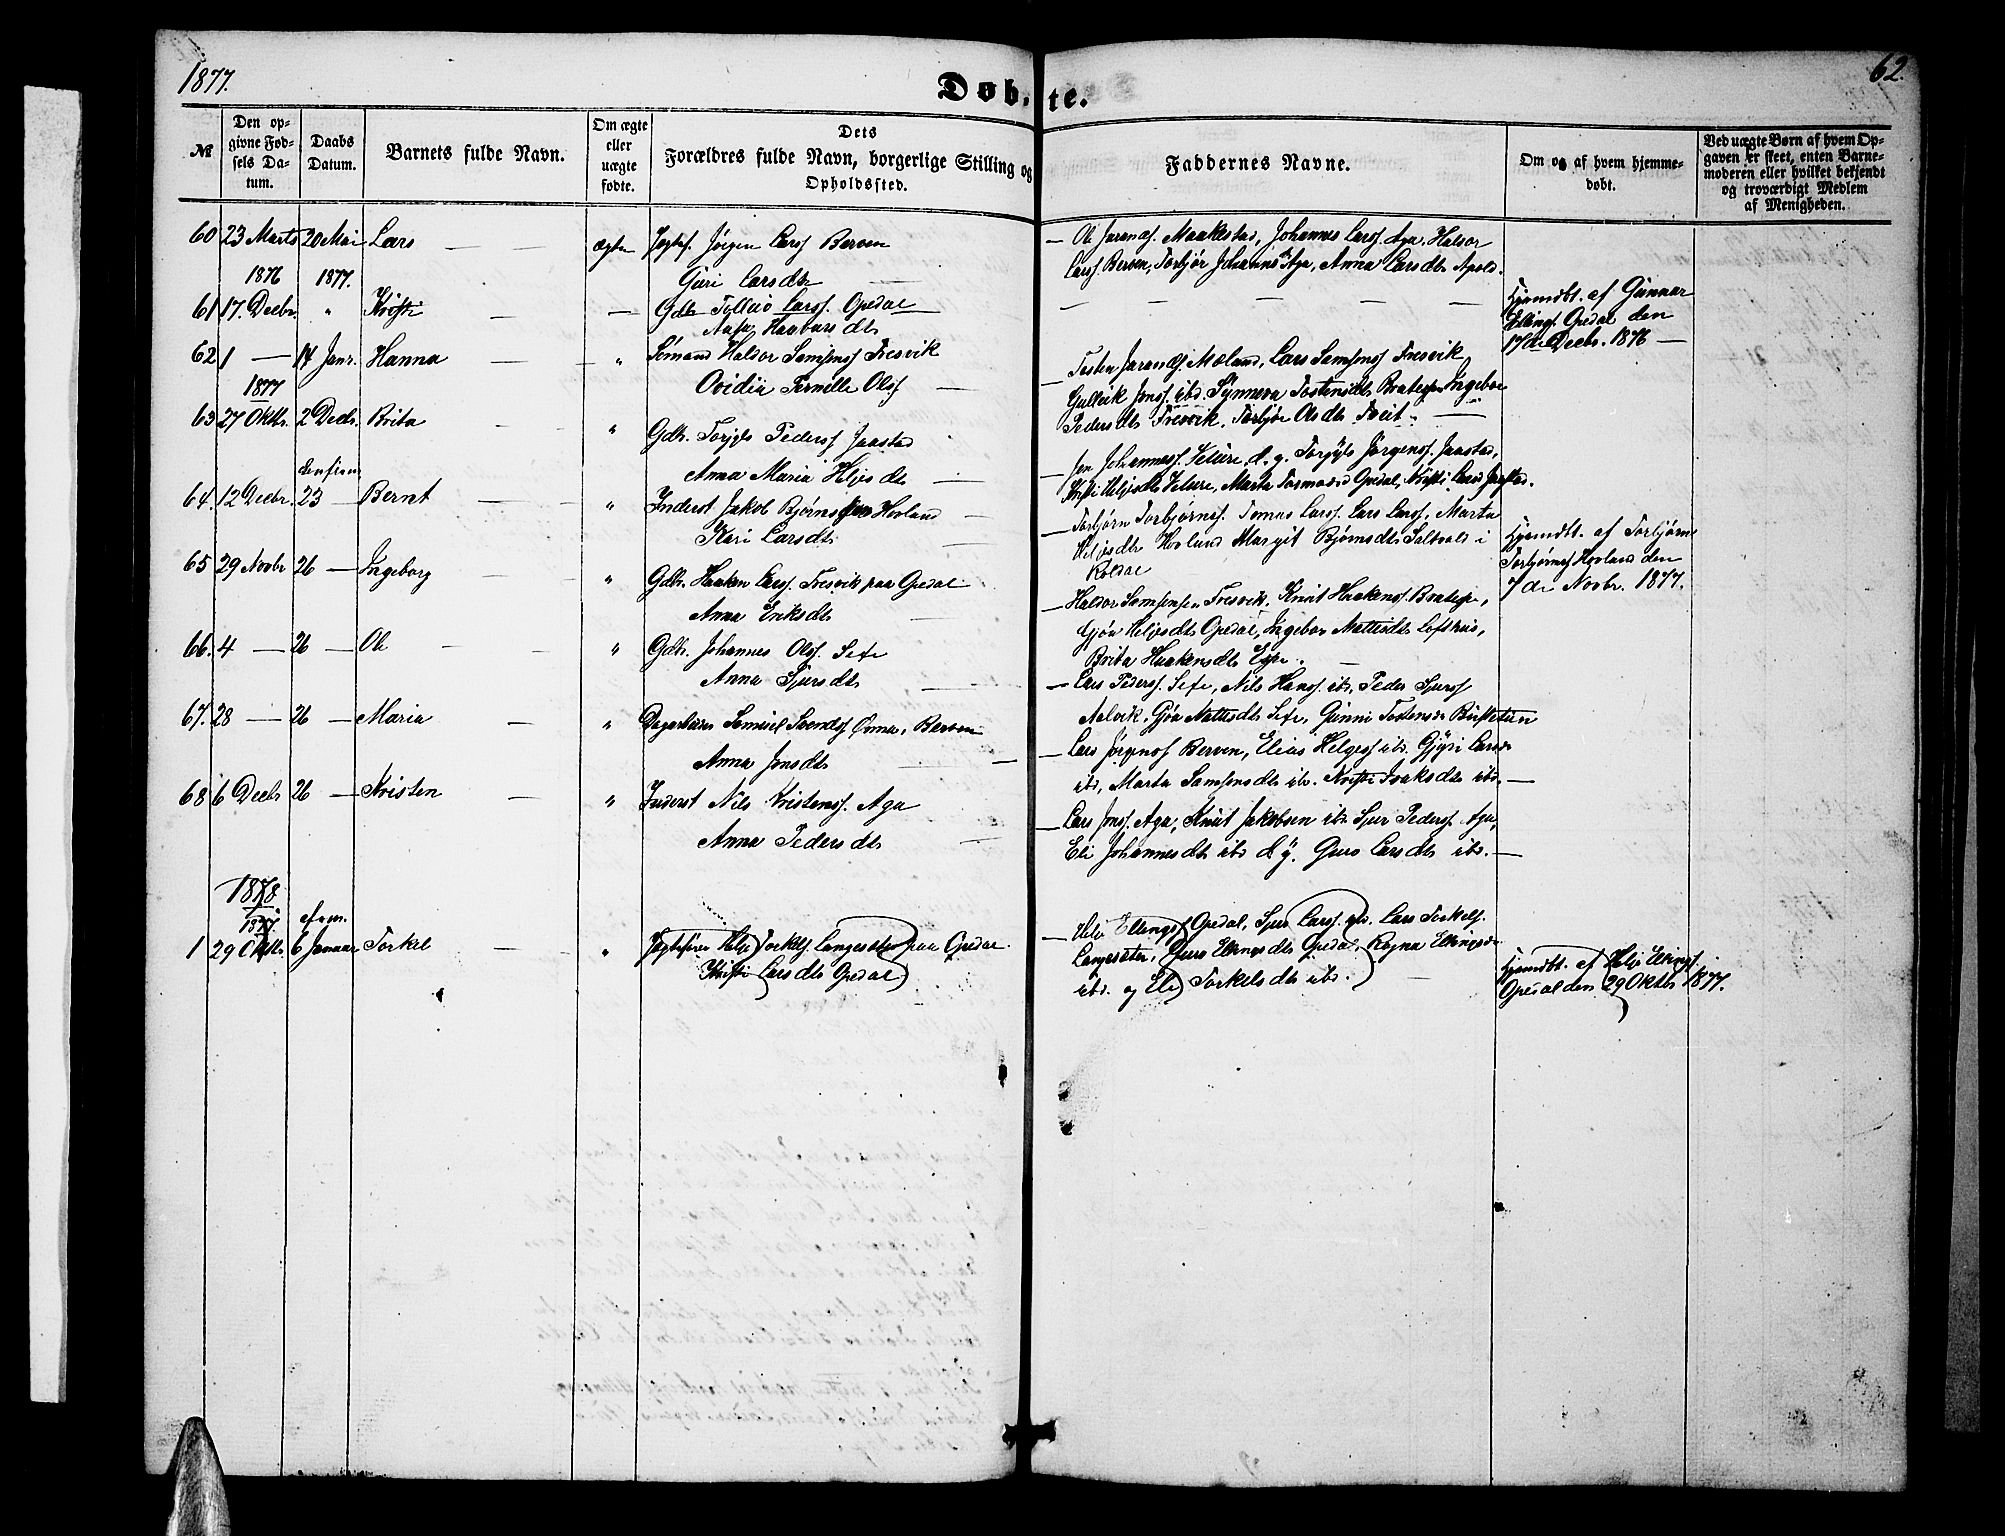 1877.
62.
Døb, te.
№
Den opgivne Fødsels Datum.
Daabs Datum.
Barnets fulde Navn.
Om ægte eller uægte fødte.
Dets Forældres fulde Navn, borgerlige Stilling og Opholdssted.
Faddernes Navne.
Om og af hvem hjemmedøbt.
Ved uægte Børn af hvem Opgaven er skeet, enten Barnemoderen eller hvilket bekjendt og troværdigt Medlem af Menigheden.
60 23 Marts 20 Mai Lars — — ægte Jørgen Larss Berven
Guri Larsdtr —
— Ole Jarands. Maakestad, Johannes Larss. Aga, Halvor
Larss Berven, Torbjør Aga, Anna Larsdtr Apold.
1876 1877.
61 17. Decbr. " Kristi — — Gdb. Larss. Opedal
Aasa Haavarsdtr
— — — — —
Hjemdbt. af Gunnar
Ellings. Opedal den
17de Decbr. 1876 —
62 1 — 14 Janr. Hanna — — " Sømand Haldor Samsons Tresvik
Ovidia Pernille Olsf —
— Tosten Jarands. Mæland, Lars Samsons Tresvik
Gullvik Jons. ibd. Synneva Tostensdtr Ingebor
Pedersdtr Tresvik, Torbjør Olsdtr Tveit. —
1877
63 27 Oktbr. 2 Decbr. Brita — " Gdb. Torjels Peders Jaastad
Anna Maria Heljesdtr —
— Jon Johanness. Velure, d. y. Jørgens. Jaastad,
Kristi Heljesdtr Velure, Marta Opedal, Kristi Jaastad.
64. 12 Decbr. 23 — Bernt — — " Inderst Jakob Bjørnsen Hovland —
Kari Larsdtr
— Torbjørn Torbjørns. Tomas Larss. Lars Larss, Marta
Heljesdtr Hovland Margit Bjørnsdtr Saltvold i
Røldal
Hjemdbt. af Torbjørn
Torbjørns Hovland den
7 de Novbr. 1877.
65 29 Novbr 26 — Ingeborg — " Gdb. Haaken Larss. Tresvik paa Opedal
Anna Eriksdtr —
— Haldor Samsonsen Tresvik, Knut Haakens
Gjøa Heljesdtr Opedal, Ingebor Mattisdtr Lofthus,
Brita Haakensdtr —
66. 4 — 26 — Ole — — " Gdb. Johannes Ols. Sexe
Anna Sjursdtr —
— Lars Peders. Sexe, Nils Hans. ibd, Peder Sjurs
Aalvik, Gjøa Mattisdtr Sexe, Gunni Bustetun
67. 28 — 26 — Maria — " Samuel Berven
Anna Jonsdtr — —
— Lars Jørgens Berven, Elias Helges ibd. Larsdr
ibd, Marta Samsonsdtr ibd. Kristi Isaksdtr ibd. —
68 6 Decbr 26 — Kristen — " Inderst Nils Kristens. Aga
Anna Pedersdtr —
— Lars Jons. Aga, Knut Jakobsen ibd. Sjur Peders. Aga,
Eli Johannesdtr ibd d y. Guro Larsdtr ibd. —
1878
1877.
1 29 Oktbr. 6 Januar Torkel " Helje Torkels. Langesæter paa Opedal.
Kristi Larsdtr Opedal
— Helje Ellings Opedal, Sjur Larss. ibd. Lars Torkels.
Langesæter, Guro Ellingsdtr Opedal, Ragna Ellingsdr
ibd. og Eli Torkelsdtr ibd. —
Hjemdbt. af Helje Ellings.
Opedal den 29 Oktbr 1877.